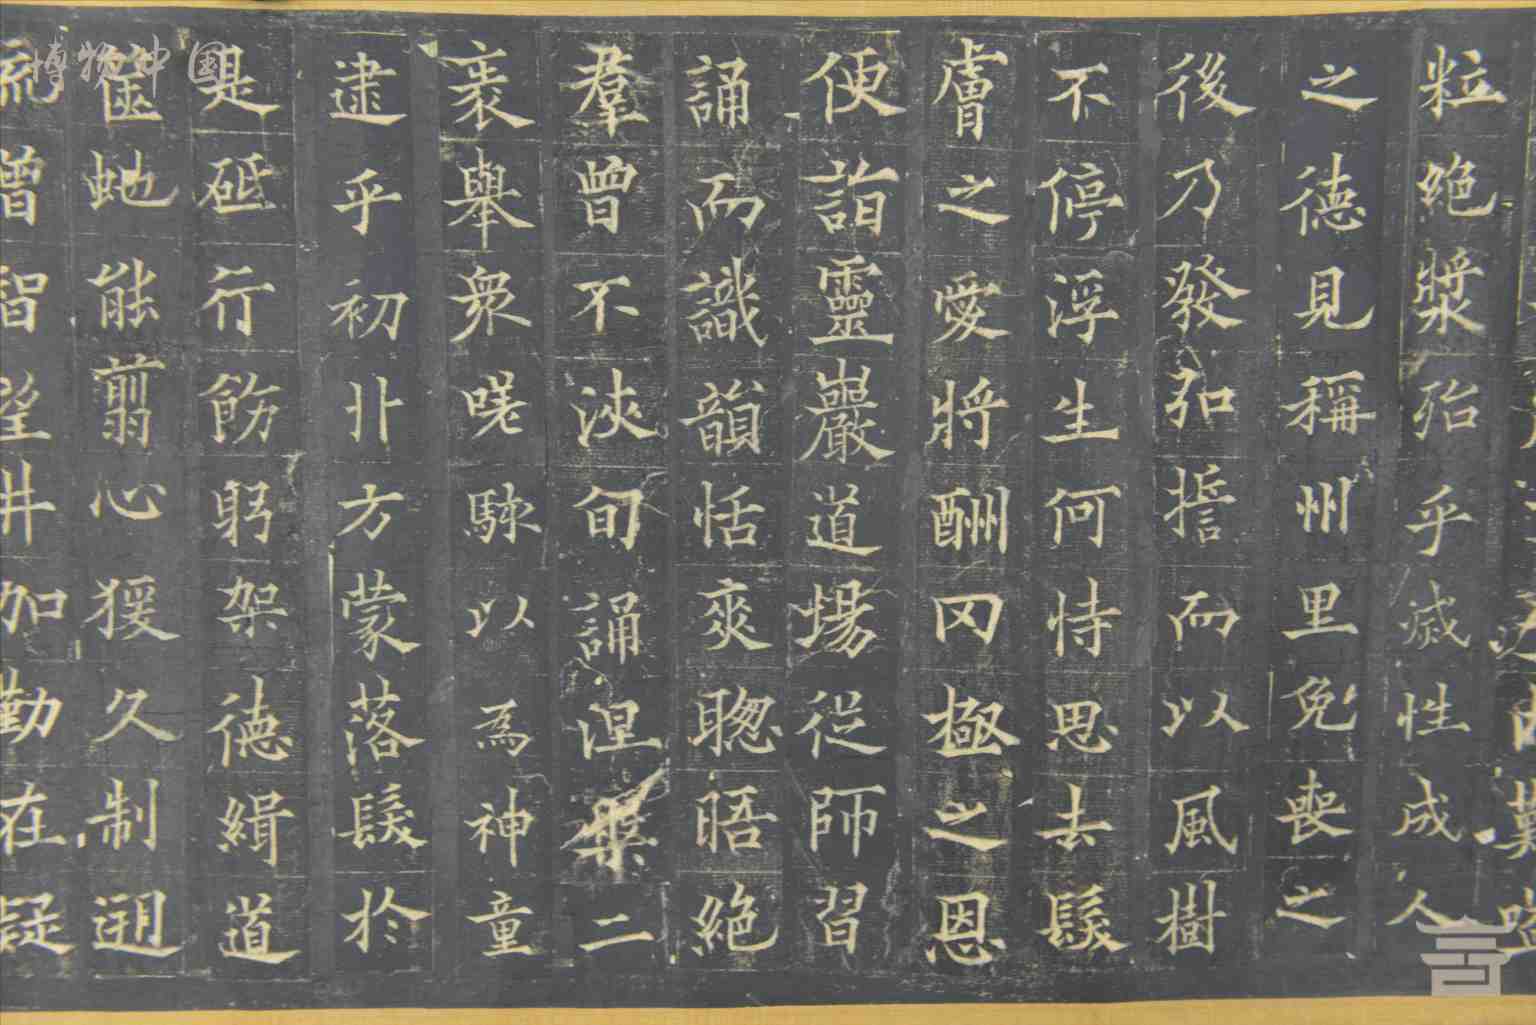 粒絶漿殆乎滅性成人
之德見稱州里免喪之
後乃發弘誓而以風樹
不停浮生何恃思去髮
膚之愛將酬罔極之恩
便詣靈巖道場從師習
誦而識韻恬爽聰晤絶
羣曾不浹旬誦涅槃二
袠舉衆嗟駭以爲神童
逮乎初丱方蒙落髮於
是砥行飭躬架德緝道
篋虵能翦心猨久制遡
流增智望井加勤在疑